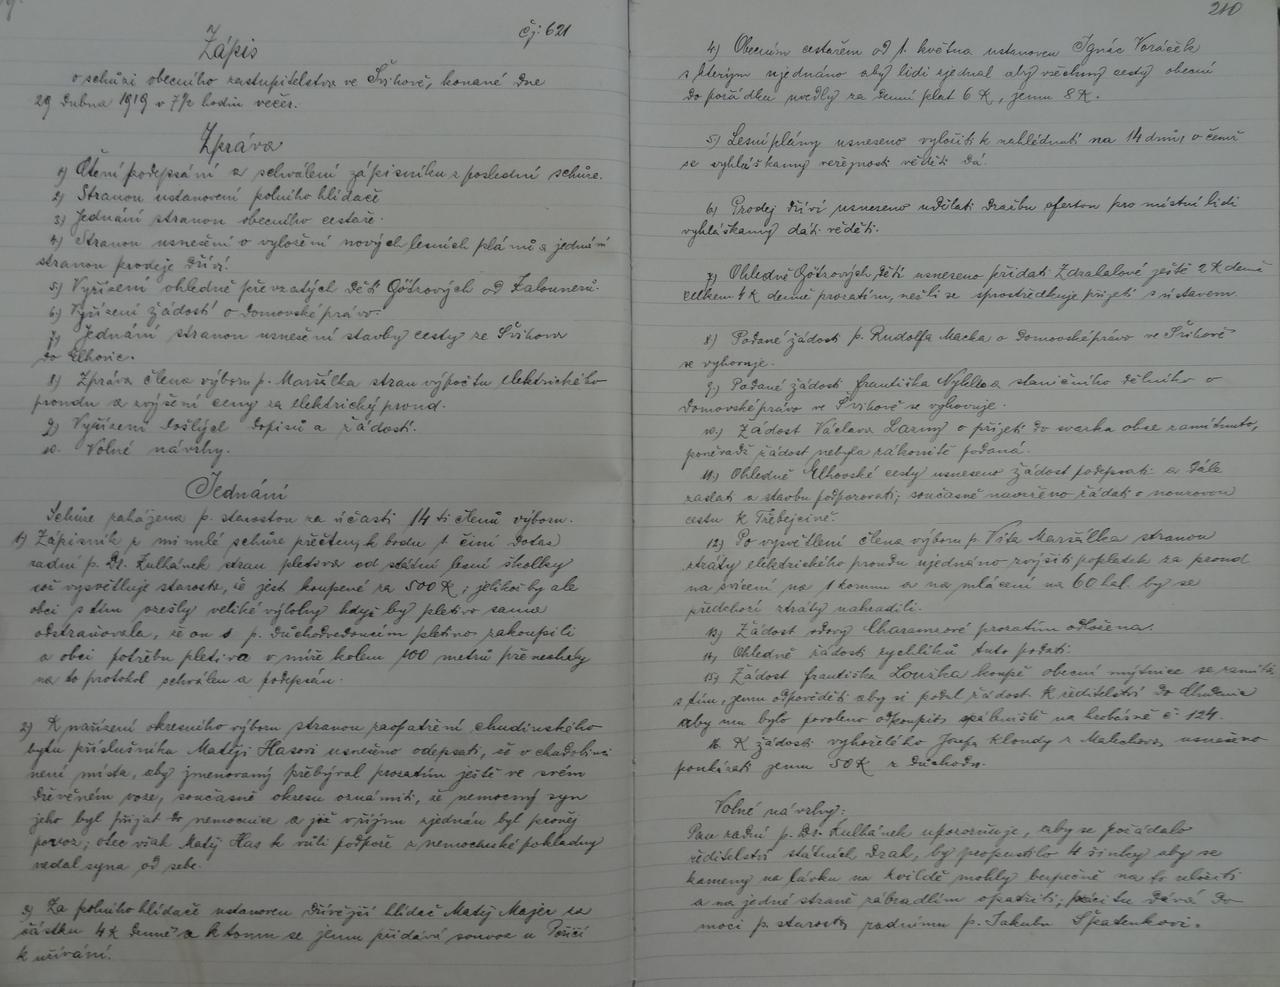 Čj: 621
Zápis
o schůzi obecního zastupitelstva ve Švihově, konané dne
29 dubna 1919 v 7½ hodin večer.
Zpráva
1) Čtení podepsání a schválení zápisníku z poslední schůze.
2) Stranou ustanovení polního hlídače
3) Jednání stranou obecního cestaře.
4) Stranou usnešení o vyložení nových lesních plánů a jednání
stranou prodeje dříví.
5) Vyřízení ohledně převzatých dětí Götzových od Zalounerů.
6) Vyřízení žádostí o domovské právo.
7) Jednání stranou usnešení stavby cesty ze Švihova
do Elhovic.
8) Zpráva člena výboru p. Maršálka stran výpočtu elektrického
proudu a zvýšení ceny za elektrický proud.
9) Vyřízení došlých dopisů a žádostí.
10. Volné návrhy.
Jednání
Schůze zahájena p. starostou za účasti 14 ti členů výboru.
1) Zápisník z minulé schůze přečten, k bodu 1. činí dotaz
radní p. Dr. Kulhánek stran pletiva od státní lesní školky
což vysvětluje starosta, že jest koupené za 500 K; jelikož by ale
obci s tím vzešly veliké výlohy když by pletivo sama
odstraňovala, že on s p. důchodvedoucím pletivo zakoupili
a obci potřebu pletiva v míře kolem 100 metrů přenechaly
na to protokol schválen a podepsán.
2) K nařízení okresního výboru stranou zaopatření chudinského
bytu příslušníka Matěji Hasovi usnešeno odepsati, že v chudobinci
není místa, aby jmenovaný přebýval prozatím ještě ve svém
dřevěném voze, současně okresu oznámiti, že nemocný syn
jeho byl přijat do nemocnice a již v říjnu zjednán byl proněj
povoz; otec však Matěj Has k vůli podpoře z nemocenské pokladny
vzdal syna od sebe.
3) Za polního hlídače ustanoven dřívější hlídač Matěj Majer za
částku 4 K denně a k tomu se jemu přidává souvoz u Poříčí
k užívání.
210
4) Obecním cestařem od 1. května ustanoven Ignác Voráček
s kterým ujednáno aby lidi zjednal aby všechny cesty obecní
do pořádku uvedly za denní plat 6 K, jemu 8 K.
5) Lesní plány usneseno vyložiti k nahlédnutí na 14 dnů, o čemž
se vyhláškami veřejnosti věděti dá.
6) Prodej dříví usneseno udělati dražbu ofertou pro místní lidi
vyhláškami dáti věděti.
7) Ohledně Götzových dětí usneseno přidati Zdrahalové ještě 2 K denně
celkem 4 K denně prozatím, nežli se zprostředkuje přijetí s ústavem.
8) Podané žádosti p. Rudolfa Macka o domovské právo ve Švihově
se vyhovuje.
9) Podané žádosti Františka staničního dělníka o
domovské právo ve Švihově se vyhovuje.
10.) Žádost Václava o přijetí do svazku obce zamítnuto,
poněvadž žádost nebyla zákonitě podaná.
11) Ohledně Elhovské cesty usneseno žádost podepsati a dále
zaslati a stavbu podporovati; současně navrženo žádati o nouzovou
cestu k Třebejcině.
12) Po vysvětlení člena výboru p. Víta Maršálka stranou
ztráty elektrického proudu ujednáno zvýšiti poplatek za proud
na svícení na 1 korunu a na mlácení na 60 hal. by se
předchozí ztráty nahradili.
13) Žádost vdovy Charamzové prozatím odložena.
14) Ohledně žádosti rychlíků tuto podati.
15) Žádost Františka koupě obecní mýtnice se zamítá
s tím, jemu odpověděti aby si podal žádost k ředitelství do Chudenic
aby mu bylo povoleno odkoupiti spáleniště na Krobárně č 124.
16. K žádosti vyhořelého Josefa Kloudy z Malechova usnešeno
poukázati jemu 50 K z důchodu.
Volné návrhy:
Pan radní p. Dr. Kulhánek upozorňuje, aby se požádalo
ředitelství státních drah, by propustilo 4 šínky aby se
kameny na lávku na kvildě mohly bezpečně na to uložiti
a na jedné straně zábradlím opatřiti; práci tu dává do
moci p. starosta radnímu p. Jakubu Špatenkovi.